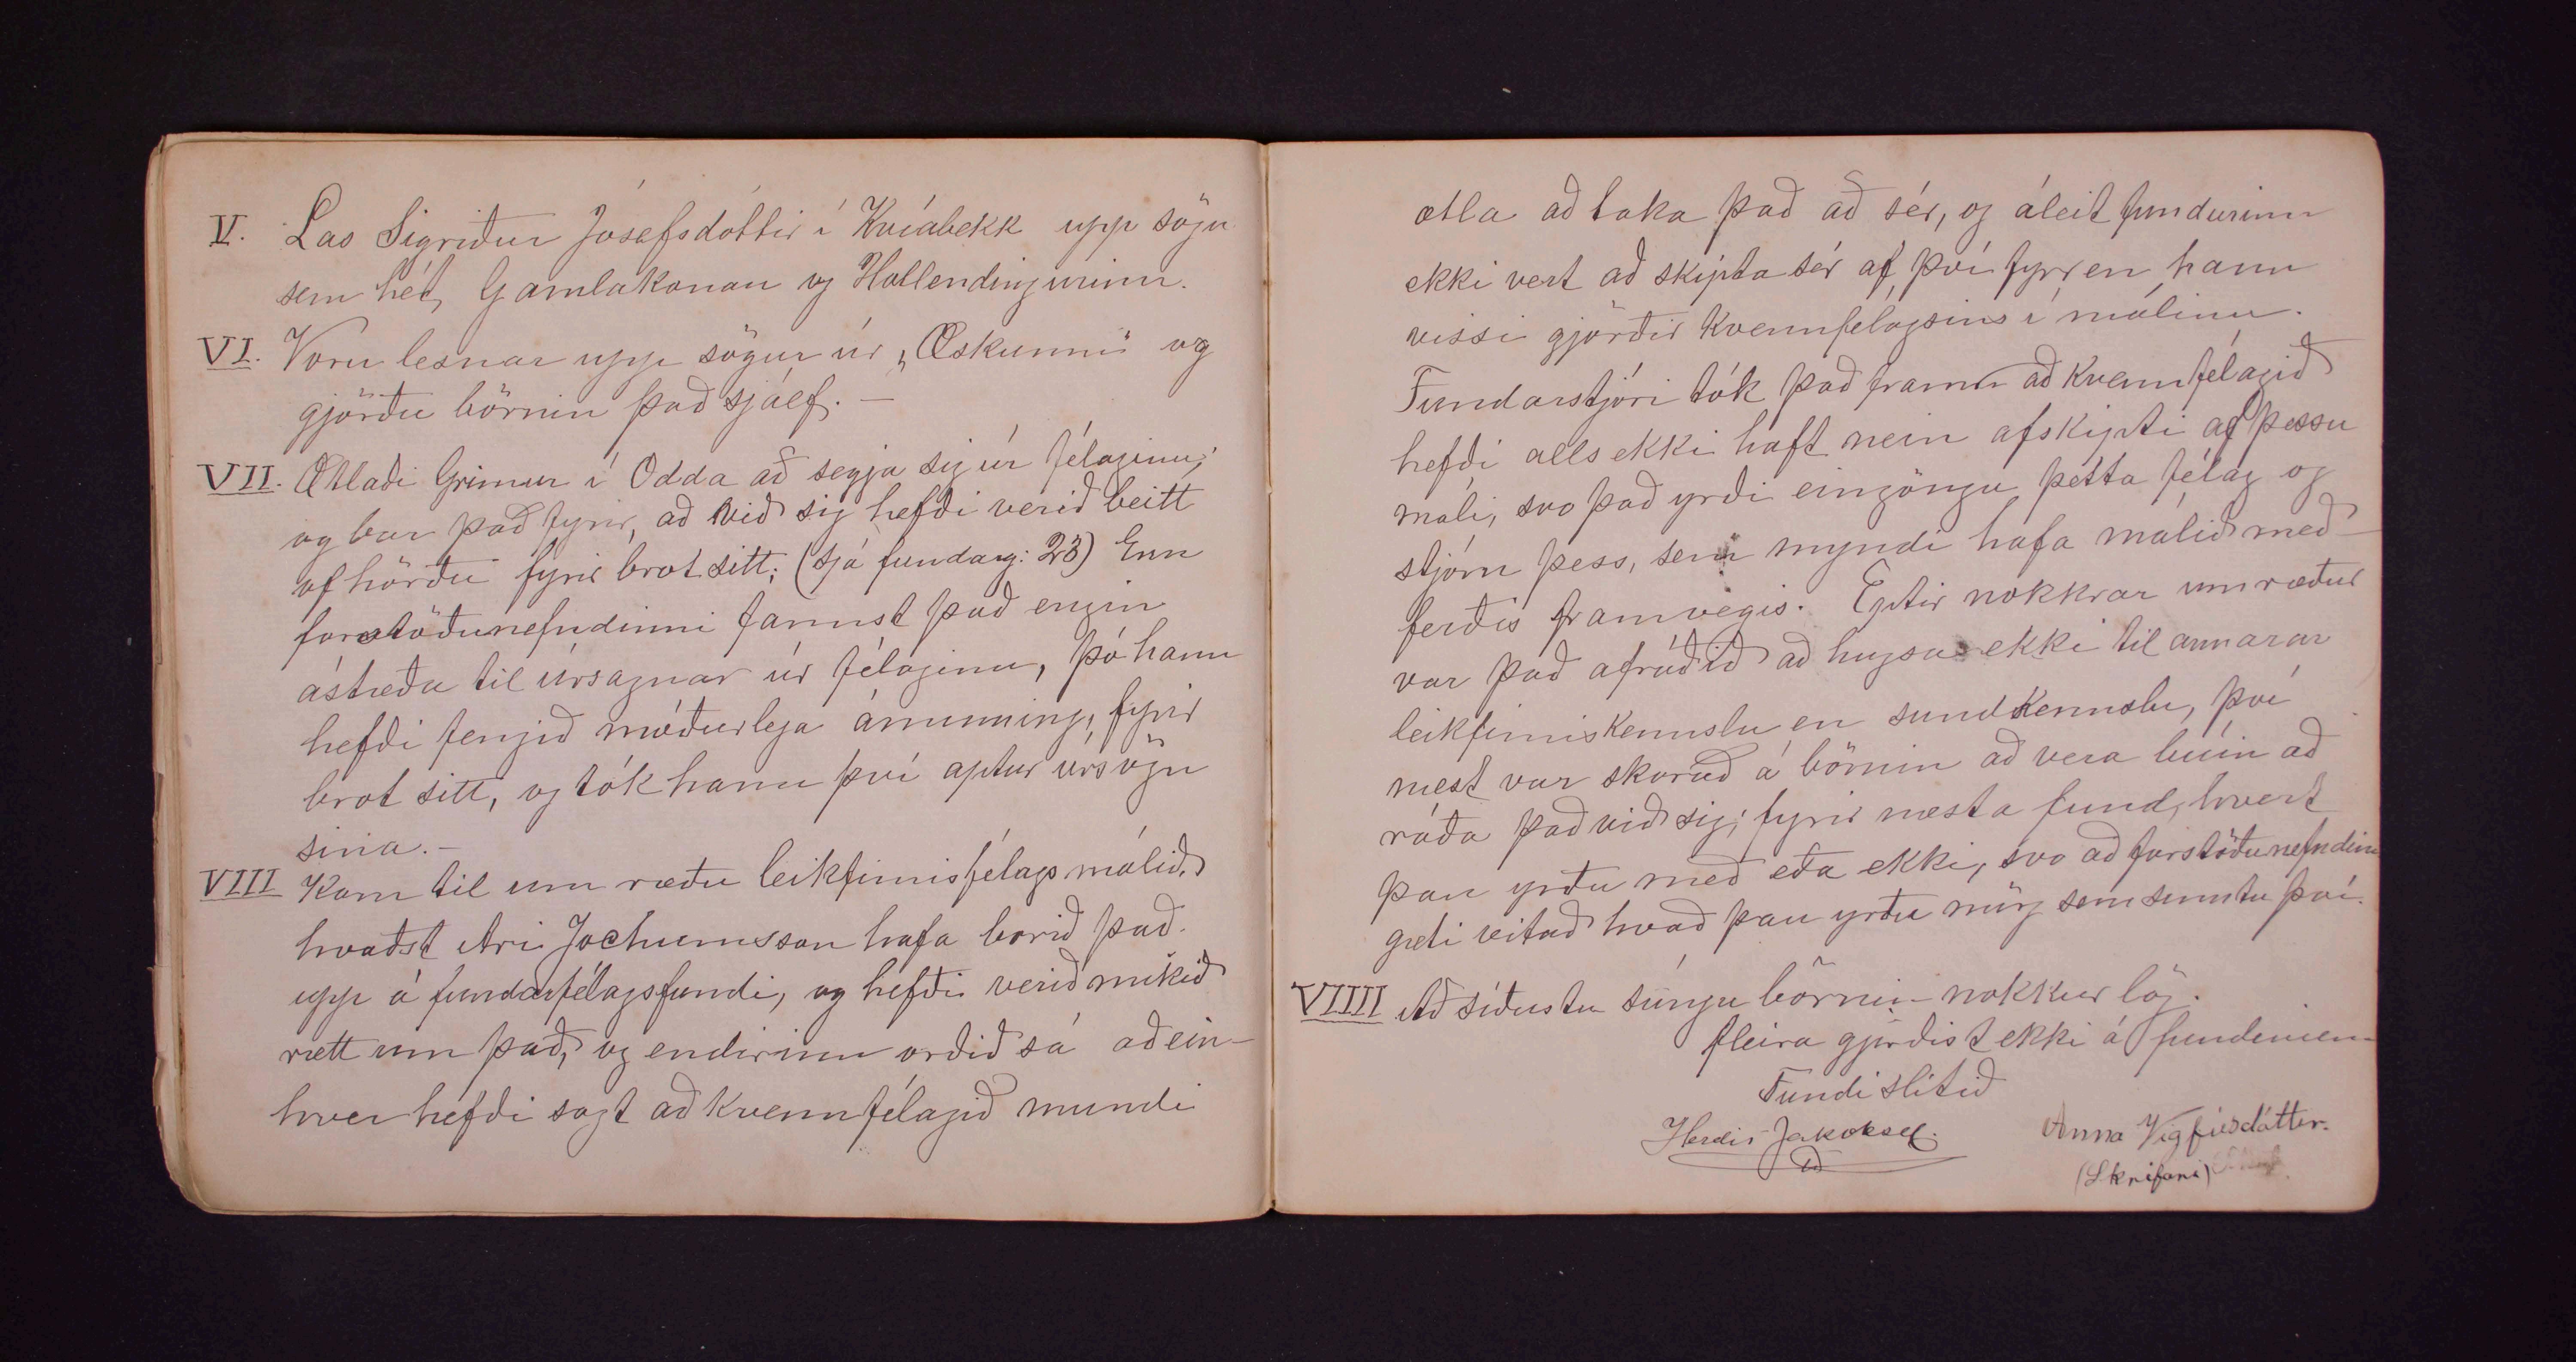 V. Las Sigriður Jósefsdóttir í Kvíabekk upp sögu
sem hét, Gamlakonan og Hollendingurinn.
VI. Voru lesnar upp sögur úr „Æskunni" og
gjörðu börnin það sjálf. —
VII. Ætlaði Grímur í Odda að segja sig úr félaginu;
og bar það fyrir, að við sig hefði verið beitt
of hörðu fyrir brot sitt; (sjá fundarg: 23) Enn
forstöðunefndinni fannst það engin
ástæða til úrsagnar úr félaginu, þó hann
hefði fengið móðurlega áminning, fyrir
brot sitt, og tók hann því aptur úrsögn
sina. —
VIII Kom til um ræðu leikfimisfélags málið,
kvaðst Ari Jochumsson hafa borið það
upp á fundafélagsfundi, og hefði verið mikið
rætt um það, og endirinn orðið sá að ein-
hver hefði sagt að Kvennfélagið mundi
ætla að taka það að sér, og áleit fundurinn
ekki vert að skipta sér af því fyrr en hann
vissi gjörðir Kvennfélagsins í málinu.
Fundarstjóri tók það framm að Kvennfélagið
hefði alls ekki haft nein afskipti af þessu
máli, svo það yrði eingöngu þetta félag og
stjórn þess, sem myndi hafa málið með-
ferðis framvegis. Eptir nokkrar umræður
var það afráðið að hugsa ekki til annarar
leikfimiskennslu en sundkennslu, því
næst var skorað á börnin að vera búin að
ráða það við sig; fyrir næsta fund, hvert
þau yrðu með eða ekki, svo að forstöðunefndin
gæti vitað hvað þau yrðu mörg sem sinntu því.
VIIII Að síðustu súngu börnin nokkur lög.
fleira gjörðist ekki á fundinum
Fundi slitið
Herdís Jakobsd. Anna Vigfúsdóttir.
(Skrifari)